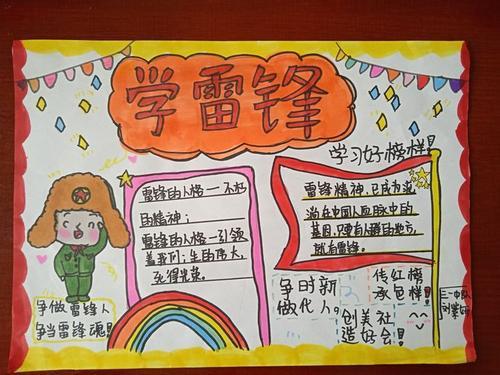 学雷锋
学习好榜样!
雷锋的人格一不朽
的精神;
雷锋的人格一引领
着我们:生的伟大,
死得光荣。
雷锋精神,已成为流
淌在中国人血脉中的
基因,只要有人群的地方,
就有雷锋。
争做雷锋人
争当雷锋魂!
争时新
做代人。
创美社
造好会!
传红榜
承色样!
三一中队